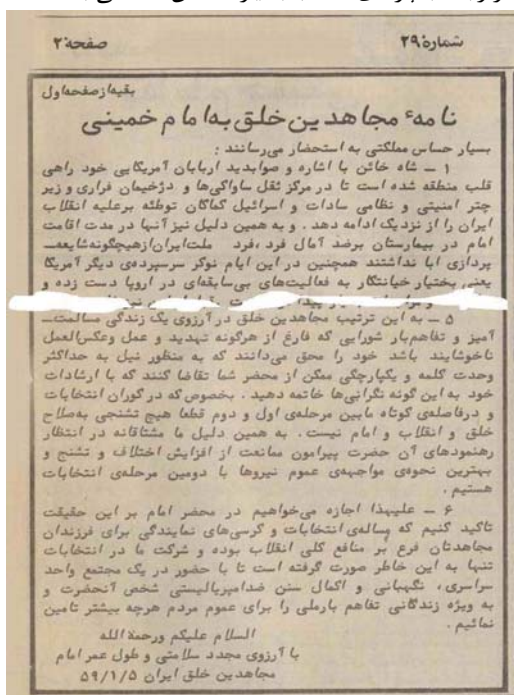 شمارهٔ ۲۹
صفحهٔ ۲
بقیه از صفحه اول
نامهٔ مجاهدین خلق به امام خمینی
بسیار حساس مملکتی به استحضار می‌رسانند :
۱ – شاه خائن با اشاره و صوابدید اربابان آمریکایی خود راهی
قلب منطقه شده است تا در مرکز ثقل ساواکی‌ها و دژخیمان فراری و زیر
چتر امنیتی و نظامی سادات و اسرائیل کماکان توطئه برعلیه انقلاب
ایران را از نزدیک ادامه دهد . و به همین دلیل نیز آنها در مدت اقامت
امام در بیمارستان برضد آمال فرد ، فرد ملت ایران از هیچگونه شایعه–
پردازی ابا نداشتند همچنین در این ایام نوکر سرسپرده‌ی دیگر آمریکا
یعنی بختیار خیانتکار به فعالیت‌های بی‌سابقه‌ای در اروپا دست زده و
۵ – به این ترتیب مجاهدین خلق در آرزوی یک زندگی مسالمت–
آمیز و تفاهم‌بار شورایی که فارغ از هرگونه تهدید و عمل وعکس‌العمل
ناخوشایند باشد خود را محق می‌دانند که به منظور نیل به حداکثر
وحدت کلمه و یکپارچگی ممکن از محضر شما تقاضا کنند که با ارشادات
خود به این گونه نگرانی‌ها خاتمه دهید . بخصوص که در کوران انتخابات
و درفاصله‌ی کوتاه مابین مرحله‌ی اول و دوم قطعا هیچ تشنجی به‌صلاح
خلق و انقلاب و امام نیست . به همین دلیل ما مشتاقانه در انتظار
رهنمودهای آن حضرت پیرامون ممانعت از افزایش اختلاف و تشنج و
بهترین نحوه‌ی مواجهه‌ی عموم نیروها با دومین مرحله‌ی انتخابات
هستیم .
۶ – علیهذا اجازه می‌خواهیم در محضر امام بر این حقیقت
تاکید کنیم که مساله‌ی انتخابات و کرسی‌های نمایندگی برای فرزندان
مجاهدتان فرع بر منافع کلی انقلاب بوده و شرکت ما در انتخابات
تنها به این خاطر صورت گرفته است تا با حضور در یک مجتمع واحد
سراسری ، نگهبانی و اکمال سنن ضدامپریالیستی شخص آنحضرت و
به ویژه زندگانی تفاهم بارملی را برای عموم مردم هرچه بیشتر تامین
نمائیم .
السلام علیکم ورحمة‌الله
با آرزوی مجدد سلامتی و طول عمر امام
مجاهدین خلق ایران ۵۹/۱/۵